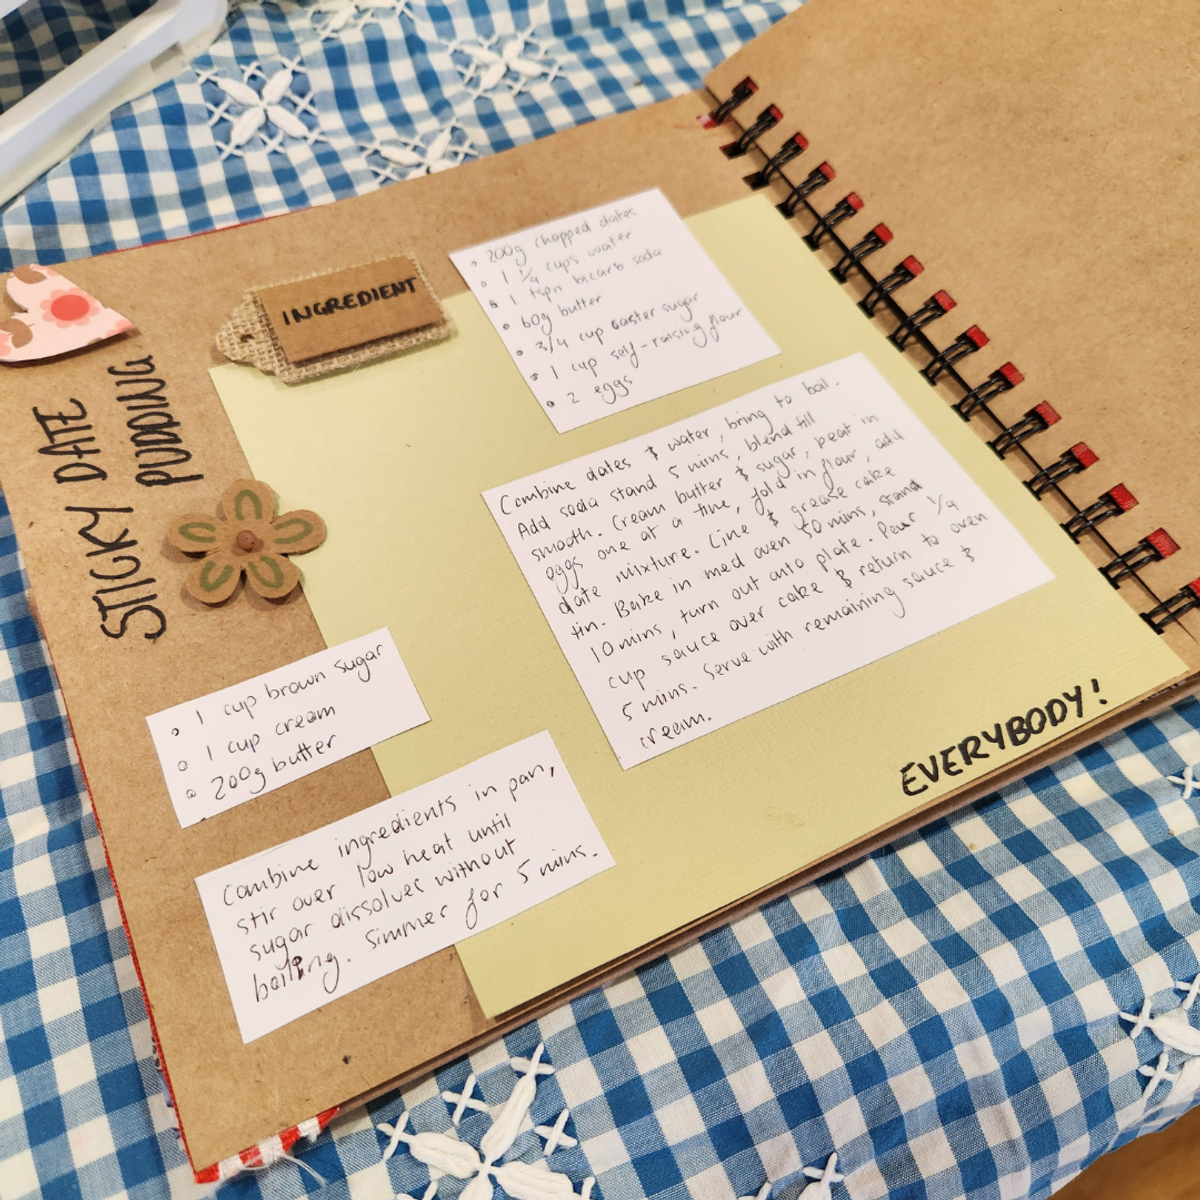 STICKY DATE
PUDDING
INGREDIENT
• 200g chopped dates
• 1 1/4 cups water
• 1 tspn bicarb soda
• 60g butter
• 3/4 cup caster sugar
• 1 cup self-raising flour
• 2 eggs
Combine dates & water, bring to boil.
Add soda stand 5 mins, blend till
smooth. Cream butter & sugar, beat in
eggs one at a time, fold in flour, add
date mixture. Line & grease cake
tin. Bake in med oven 50 mins, stand
10 mins, turn out onto plate. Pour 1/4
cup sauce over cake & return to oven
5 mins. Serve with remaining sauce &
cream.
• 1 cup brown sugar
• 1 cup cream
• 200g butter
Combine ingredients in pan,
stir over low heat until
sugar dissolves without
boiling. Simmer for 5 mins.
EVERYBODY!